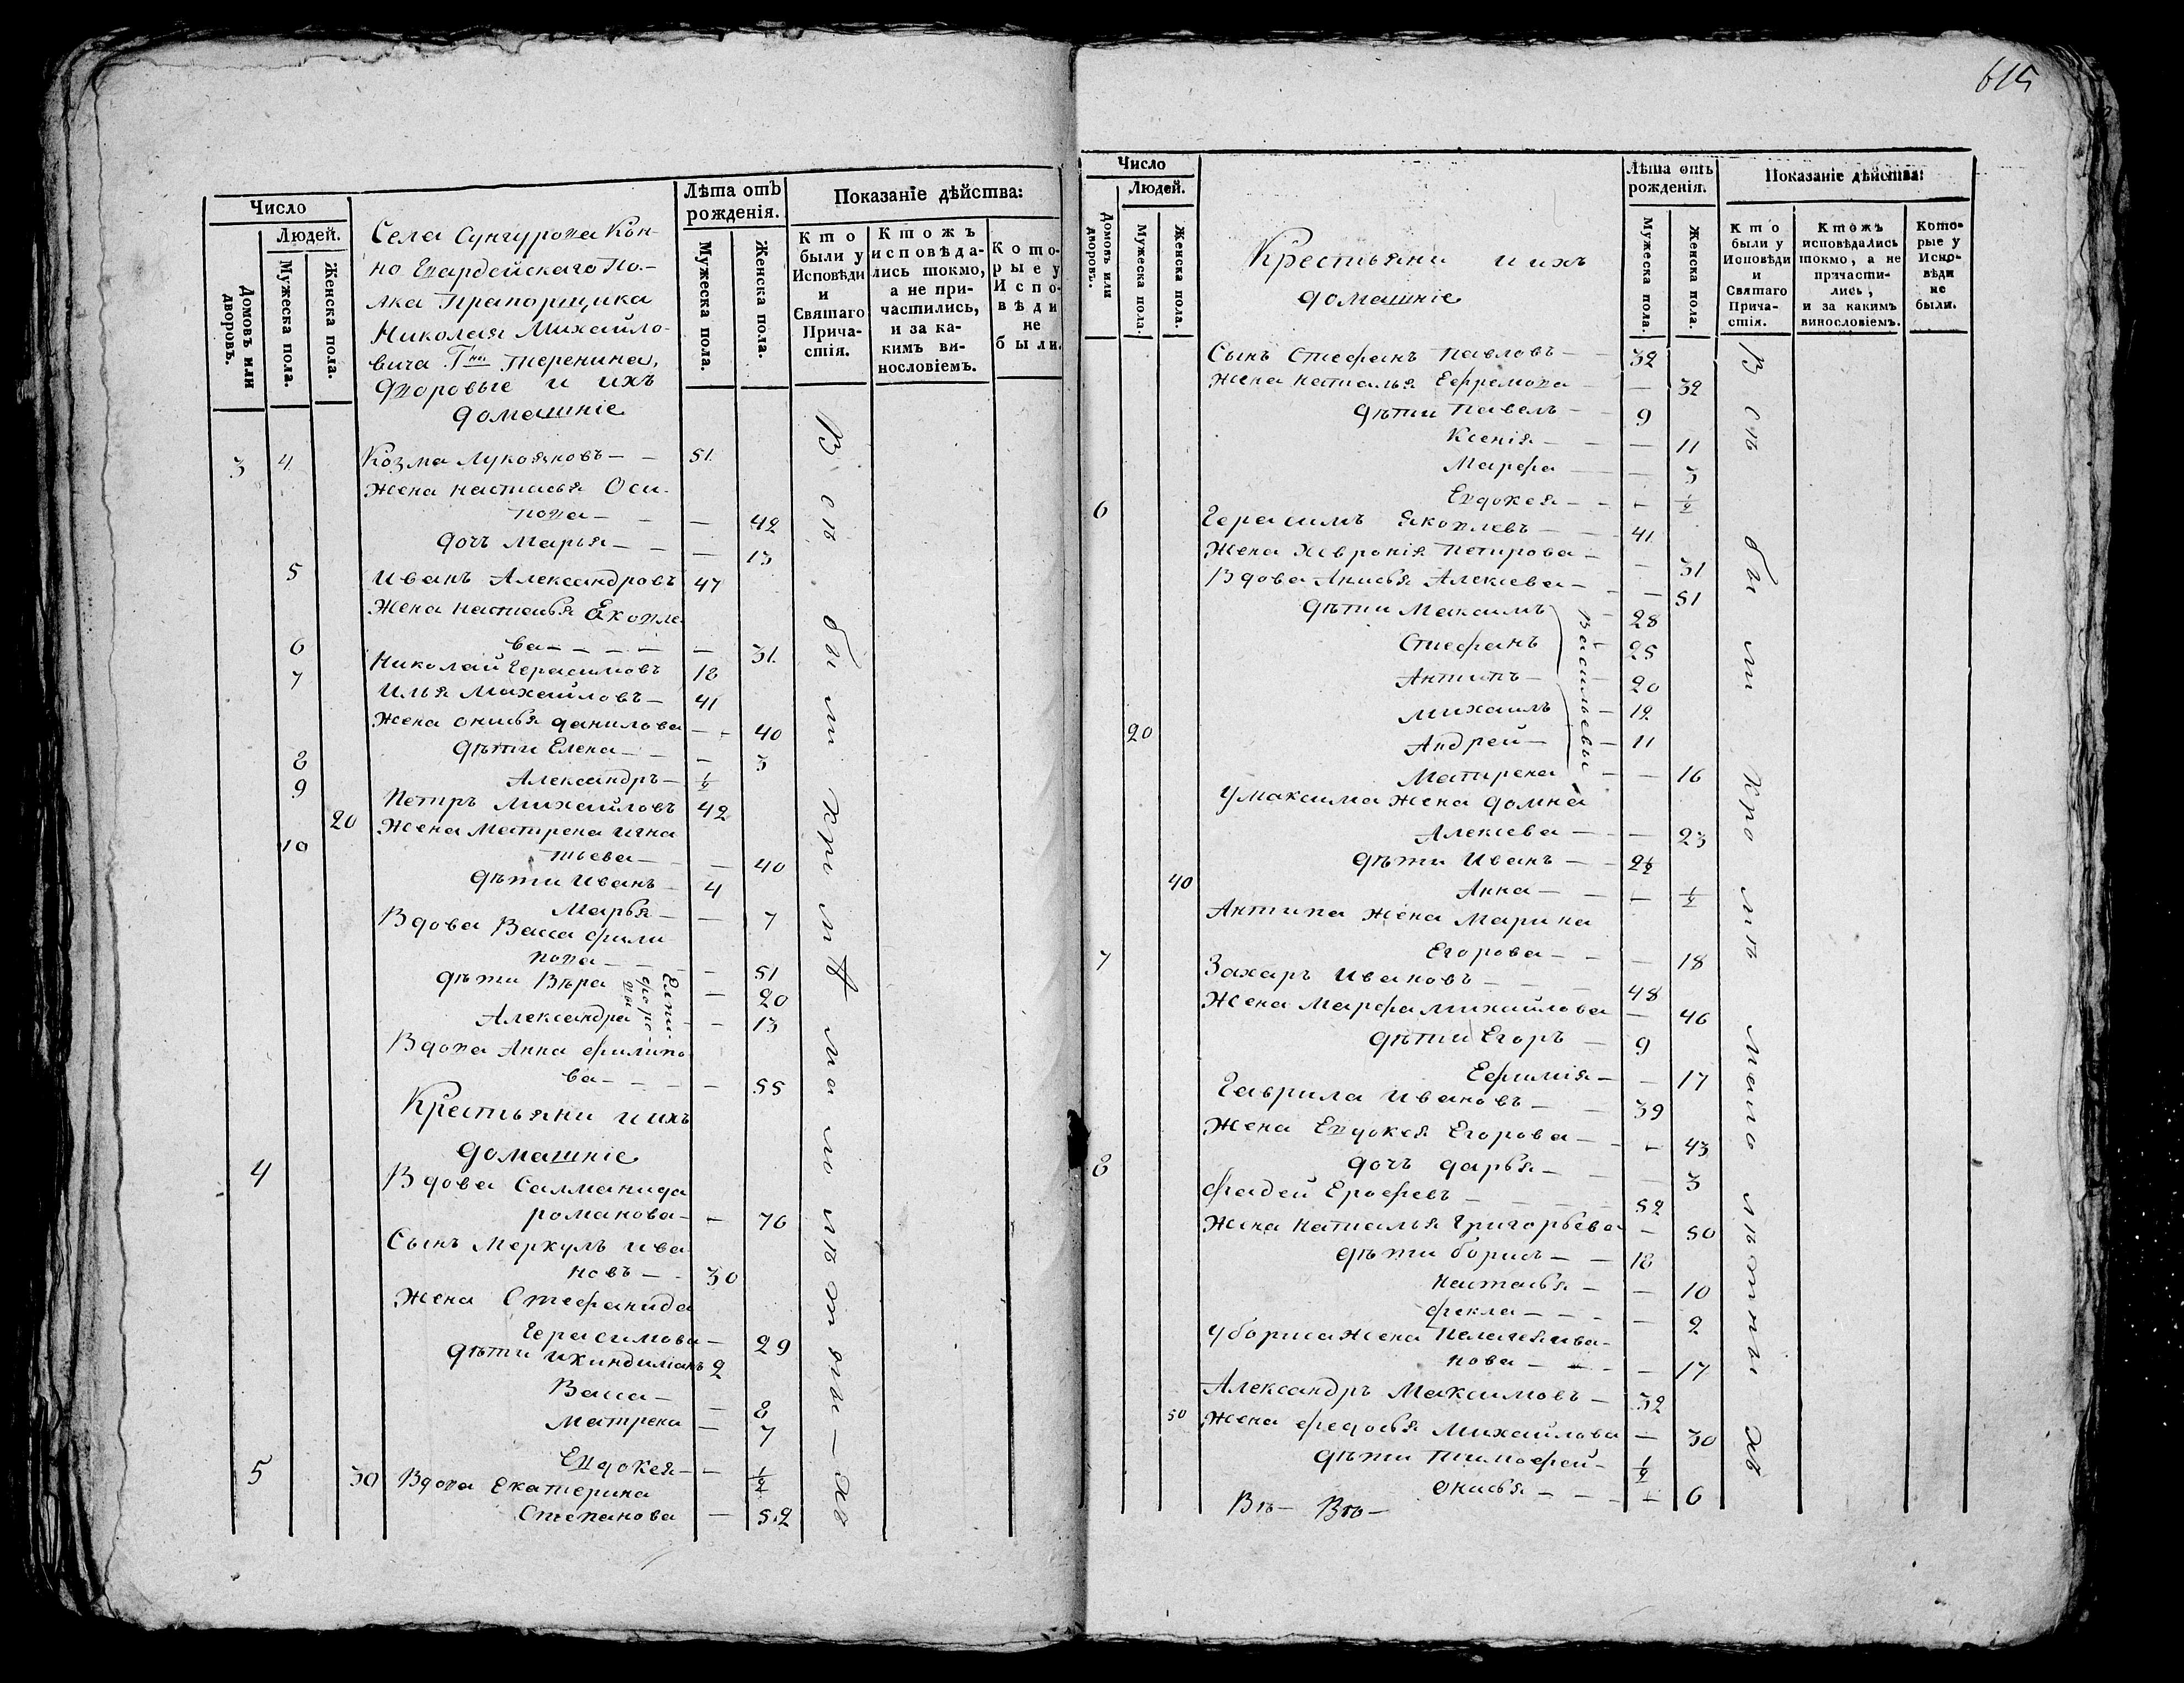 Число
Людей.
Домовъ или дворовъ.
Мужеска пола.
Женска пола.
Лѣта отъ рожденія.
Мужеска пола.
Женска пола.
Показаніе дѣйства:
Кто были у Исповѣди и Святаго Причастія.
Ктожъ исповѣдались токмо, а не причастились, и за какимъ винословіемъ.
Которые у Исповѣди не были.
Села Сунгурова Кон-
но Гвардейскаго По-
лка Прапорщика
Николая Михайло-
вича Г-на Теренина,
дворовые и ихъ
домашніе
3 4 Козма Лукояновъ — — 51
Жена Настасья Оси-
пова — — — 42
дочь Марья — — — 13
5 Иванъ Александровъ 47
Жена Настасья Яковле
ва — — — — — 31
6 Николай Герасимовъ 18
7 Илья Михайловъ — 41
Жена Онисья Данилова — — 40
дѣти Елена — — — 3
8 Александръ — ½
9 Петръ Михайловъ 42
20 Жена Матрена Игна
тьева — — — 40
10 дѣти Иванъ — 4
Марья — — 7
Вдова Васса Фили
пова — — — — 51
дѣти Вѣра — 20
Александра — — 13
Вдова Анна Филипо
ва — — — — 55
Крестьяни и ихъ
домашніе
4 Вдова Салманида
Романова — — 76
Сынъ Меркулъ Ива
новъ — — 30
Жена Стефанида
Герасимова — 29
дѣти Икиндиліанъ 2
Васса — — 8
Матрена — 7
Евдокея — — ½
5 30 Вдова Екатерина
Степанова — 52
Всѣ были кромѣ малолѣтныхъ
615
Число
Людей.
Домовъ или дворовъ.
Мужеска пола.
Женска пола.
Лѣта отъ рожденія.
Мужеска пола.
Женска пола.
Показаніе дѣйства:
Кто были у Исповѣди и Святаго Причастія.
Ктожъ исповѣдались токмо, а не причастились, и за какимъ винословіемъ.
Которые у Исповѣди не были.
Крестьяни и ихъ
домашніе
Сынъ Стефанъ Павловъ — — 32
Жена Наталья Ефремова — — 32
дѣти Павелъ — — 9
Ксенія — — — 11
Марфа — — 3
Евдокея — — — ½
6 Герасимъ Яковлевъ — — 41
Жена Хавронія Петрова — — 31
Вдова Анисья Алексеева — — — 51
дѣти Максимъ — 28
Стефанъ — 25
Антипъ — — 20
Михаилъ — 12
20 Андрей — — 11
Матрена — — 16
Васильевы
у Максима жена Домна
Алексева — — — 23
дѣти Иванъ — — 2½
40 Анна — — — ½
Антипа жена Марина
Егорова — — — 18
7 Захаръ Ивановъ — — — 48
Жена Марфа Михайлова — 46
дѣти Егоръ — 9
Ефимія — — 17
Гаврила Ивановъ — — 39
Жена Евдокея Егорова — — — 43
дочь Дарья — — — 3
8 Фадей Ерофеевъ — — — — 52
Жена Наталья Григорьева — 50
дѣти Борисъ — — 18
Настасья — — 10
Фекла — — — — 2
у Бориса жена Пелагея Ива-
нова — — — — 17
Александръ Максимовъ — 32
50 Жена Федосья Михайлова — 30
дѣти Тимофей — ½
Онисья — — — — 6
Всѣ были кромѣ малолѣтныхъ
Въ — Въ —